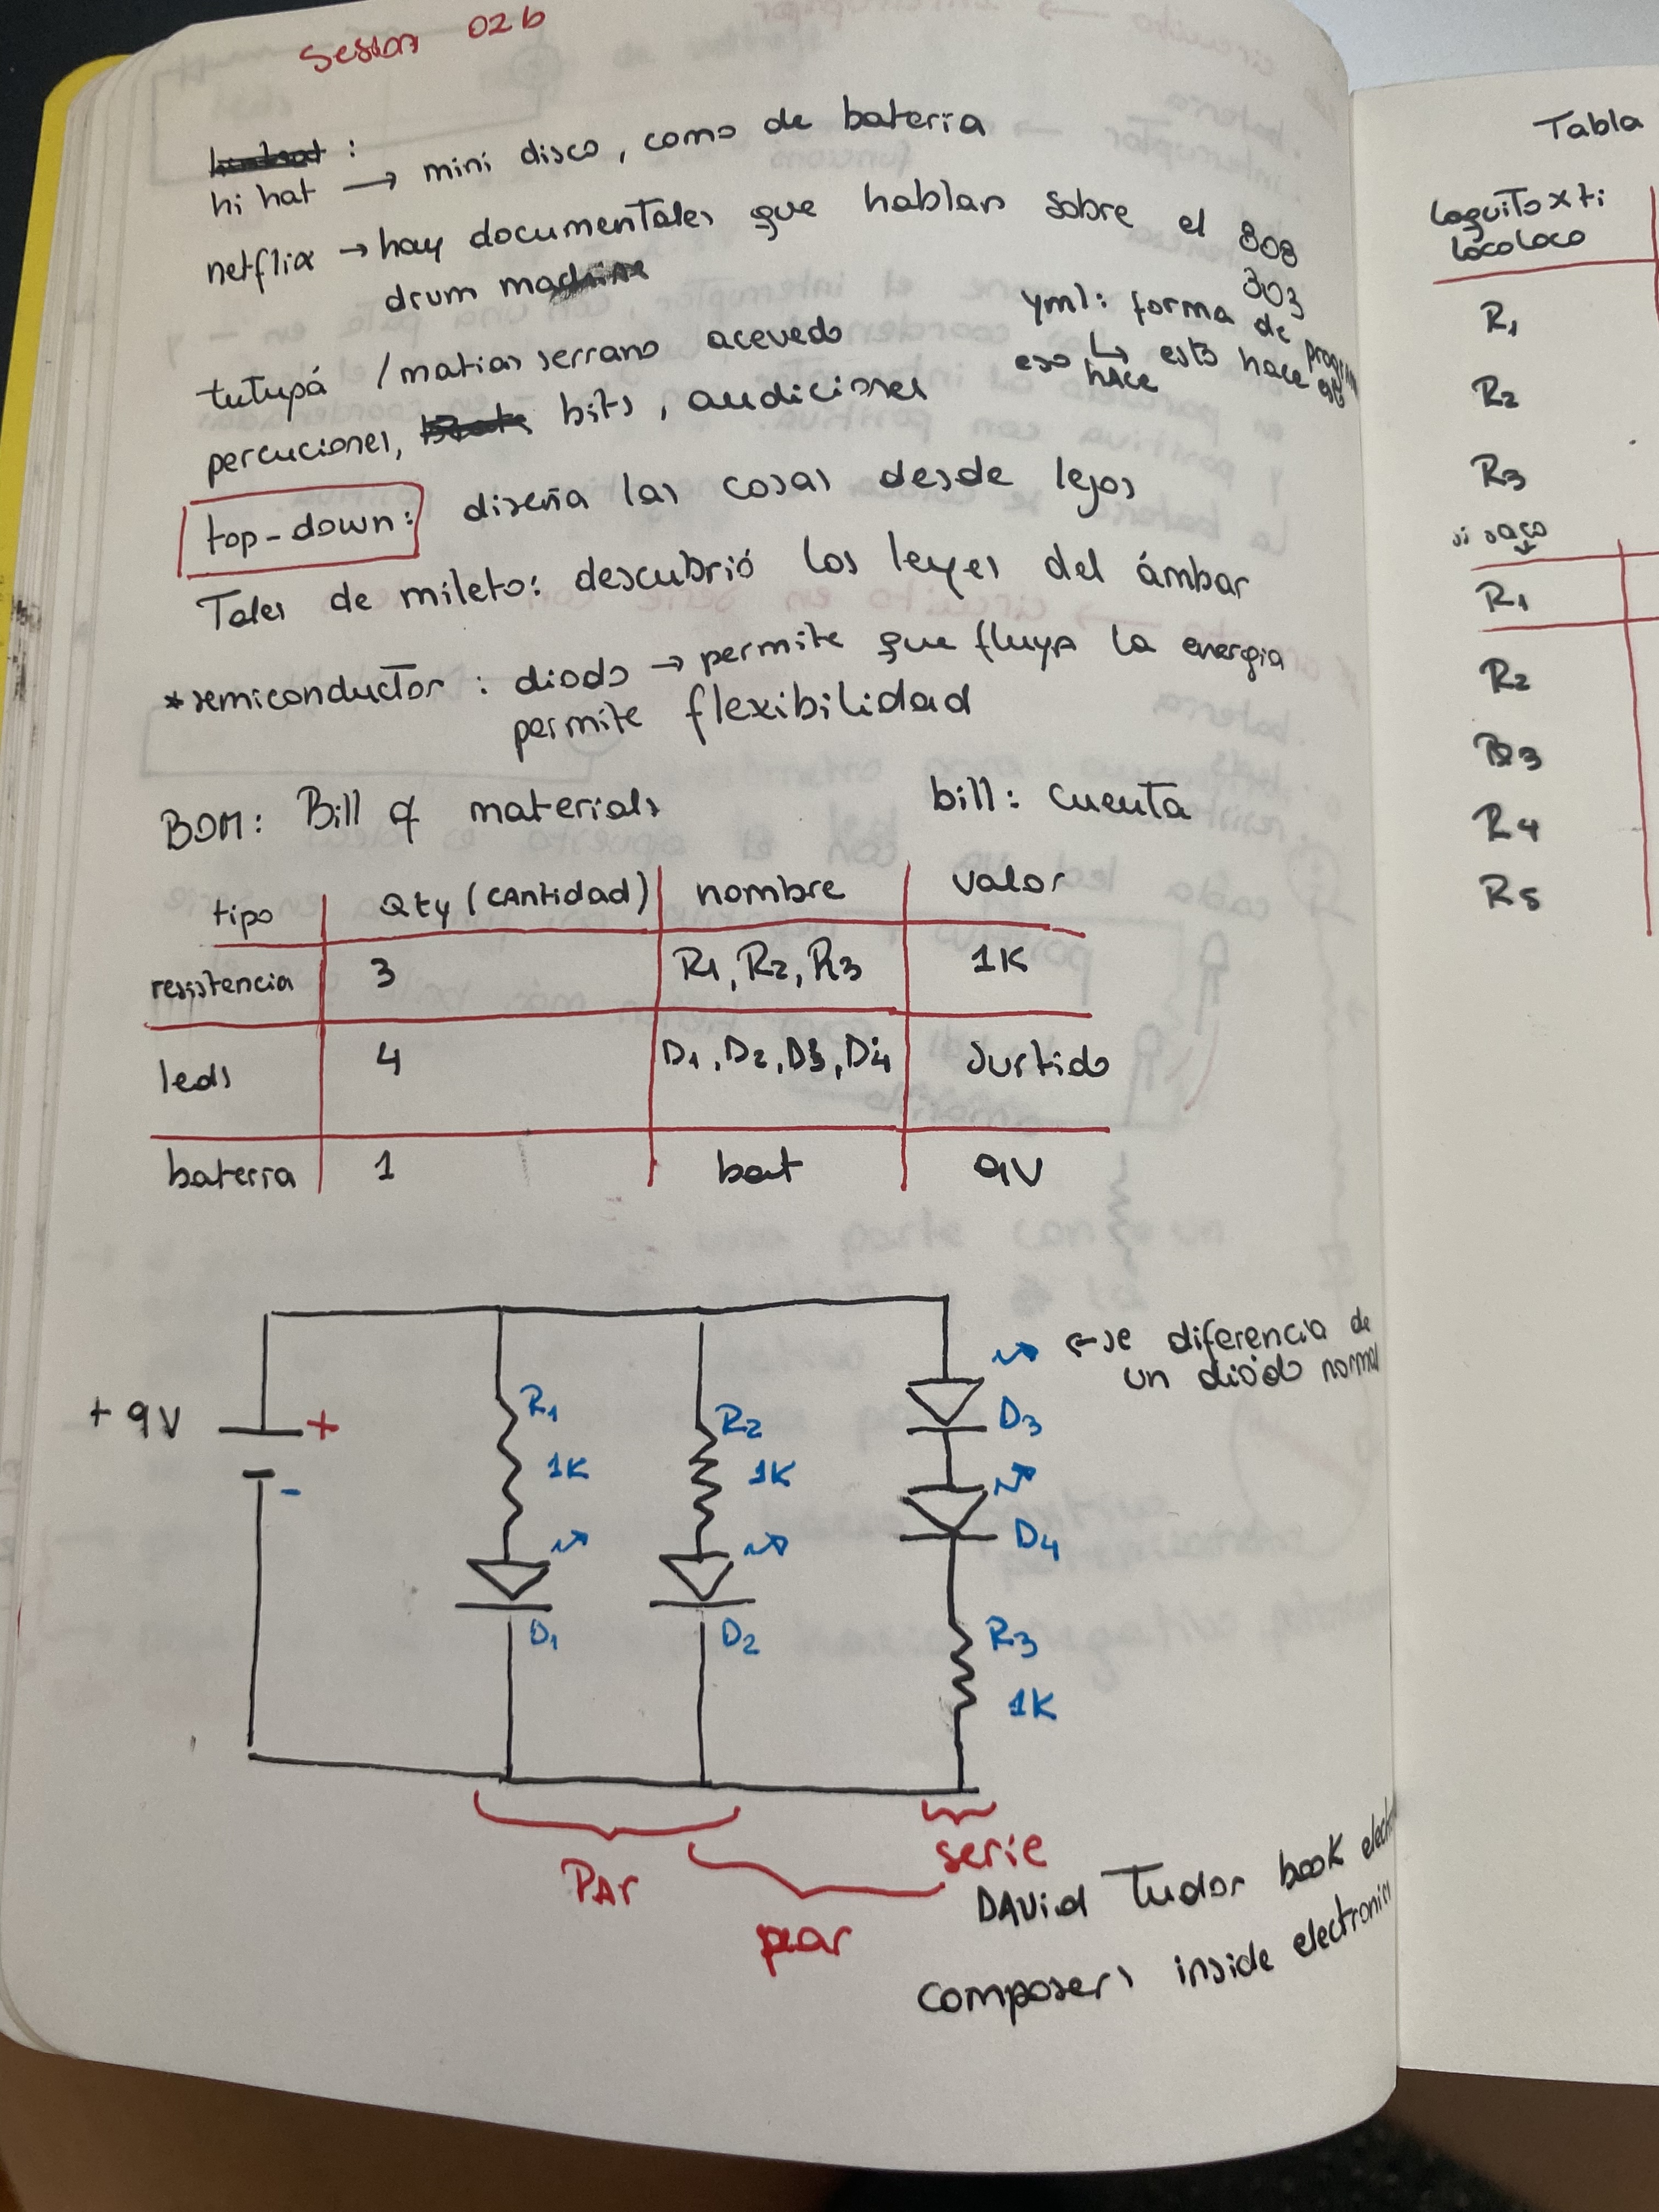 Sesion 02b
hi hat → mini disco, como de bateria
netflix → hay documentales que hablan sobre el 808
303
drum machine
yml: forma de
eso hace ↳ esto hace
tutupá / matias serrano acevedo
percuciones, bits, audiciones
top-down: diseña las cosas desde lejos
Tales de mileto: descubrió los leyes del ámbar
*semiconductor: diodo → permite que fluya la energia
permite flexibilidad
BOM: Bill of materials bill: cuenta
tipo Qty (cantidad) nombre valor
resistencia 3 R1, R2, R3 1K
leds 4 D1, D2, D3, D4 surtido
bateria 1 bat 9V
←se diferencia de
un diodo normal
+ 9V + -
R1
1K
D1
R2
1K
D2
D3
D4
R3
1K
PAr
par
serie
DAVid Tudor book
composers inside
Tabla
loco loco
R1
R2
R3
R1
R2
R3
R4
R5